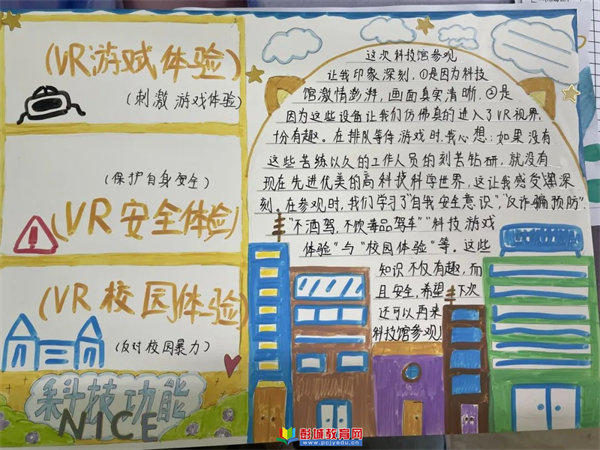 (VR游戏体验)
(刺激游戏体验)
(保护自身安全)
(VR安全体验)
(VR校园体验)
(反对校园暴力)
科技功能
NICE
这次科技馆参观
让我印象深刻,①是因为科技
馆激情澎湃,画面真实清晰.②是
因为这些设备让我们仿佛真的进入了VR视界,
十分有趣。在排队等待游戏时.我心想:如果没有
这些苦练以久的工作人员的刻苦钻研,就没有
现在先进优美的高科技科学世界,这让我感受深
刻.在参观时,我们学习了"自我安全意识","反诈骗预防",
"不酒驾,不饮毒品驾车""科技游戏
体验"与"校园体验"等。这些
知识不仅有趣,而
且安全,希望下次
还可以再来
科技馆参观!
彭城教育网
www.pcjyedu.cn